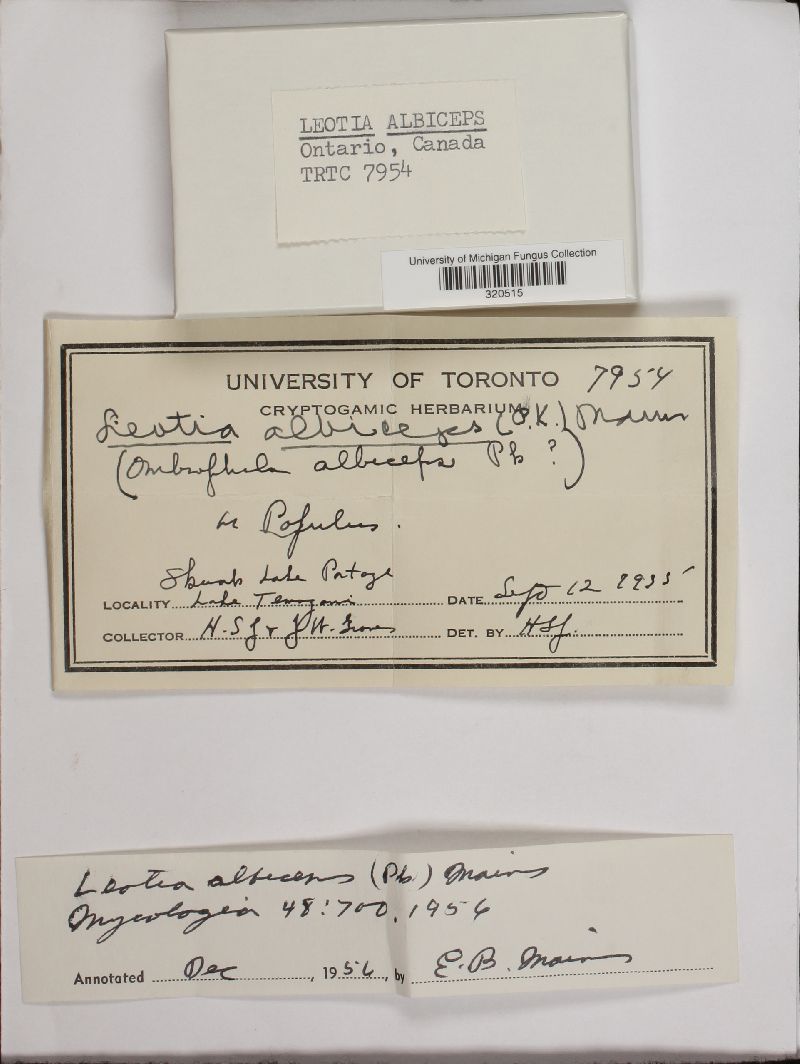 LEOTIA ALBICEPS
Ontario, Canada
TRTC 7954
University of Michigan Fungus Collection
320515
UNIVERSITY OF TORONTO 7954
CRYPTOGAMIC HERBARIUM
Leotia albiceps (P.K.) Mains
(Ombrophila albiceps Pk ?)
Populus.
Skunk Lake Portage
LOCALITY Lake Temagami DATE Sept 12 1935
COLLECTOR H.S.J & J.W. Groves DET. BY HSJ.
Leotia albiceps (Pk) Mains
Mycologia 48:700. 1956
Annotated Dec, 1956, by E.B. Mains